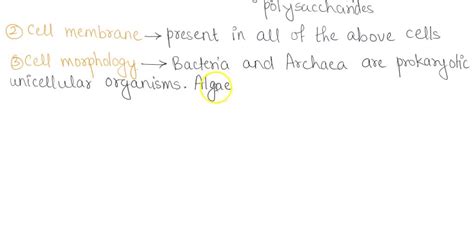 polysaccharides
② Cell membrane → present in all of the above cells
③ Cell morphology → Bacteria and Archaea are prokaryotic
unicellular organisms. Algae